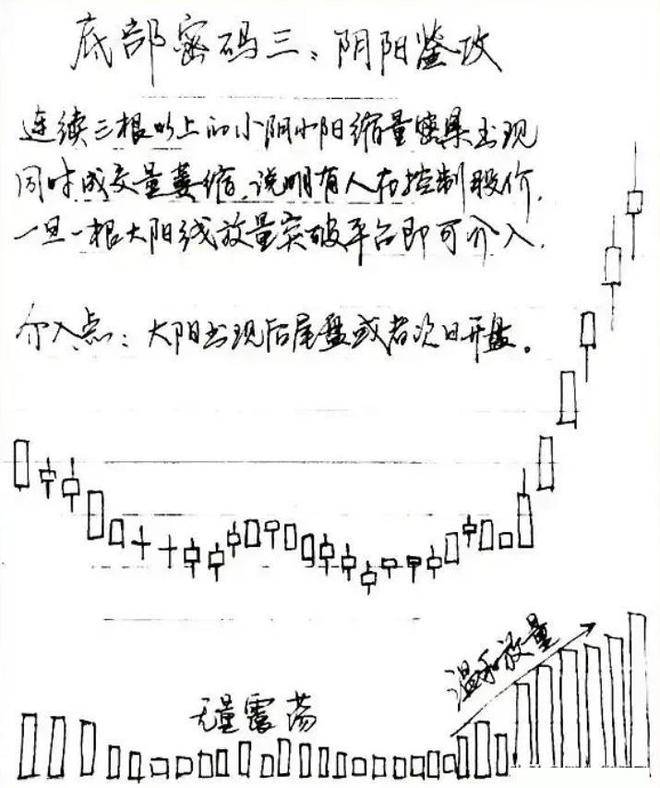 底部密码三：阴阳鉴攻
连续三根以上的小阴小阳缩量密集出现
同时成交量萎缩，说明有人在控制股价，
一旦一根大阳线放量突破平台即可介入。
介入点：大阳出现后尾盘或者次日开盘。
温和放量
无量震荡